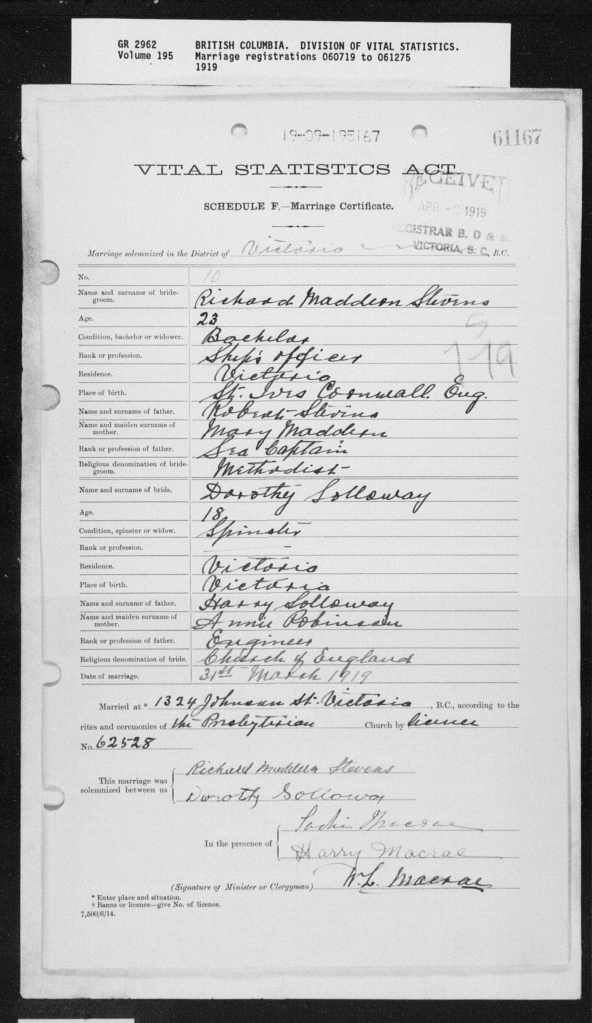 GR 2962 BRITISH COLUMBIA. DIVISION OF VITAL STATISTICS.
Volume 195 Marriage registrations 060719 to 061275
1919
19-09-195167
61167
VITAL STATISTICS ACT
RECEIVED
APR 1919
REGISTRAR B. D &
VICTORIA, B. C.
SCHEDULE F.—Marriage Certificate.
Marriage solemnized in the District of Victoria B.C.
No. 10
Name and surname of bridegroom. Richard Maddern Stevens
Age. 23
Condition, bachelor or widower. Bachelor
Rank or profession. Ship's officer
Residence. Victoria
Place of birth. St. Ives Cornwall. Eng.
Name and surname of father. Robert Stevens
Name and maiden surname of mother. Mary Maddern
Rank or profession of father. Sea Captain
Religious denomination of bridegroom. Methodist
Name and surname of bride. Dorothy Solloway
Age. 18
Condition, spinster or widow. Spinster
Rank or profession.
Residence. Victoria
Place of birth. Victoria
Name and surname of father. Harry Solloway
Name and maiden surname of mother. Annie Robinson
Rank or profession of father. Engineer
Religious denomination of bride. Church of England
Date of marriage. 31st March 1919
Married at * 1324 Johnson St. Victoria, B.C., according to the
rites and ceremonies of the Presbyterian Church by licence
No. 62528
This marriage was solemnized between us
Richard Maddern Stevens
Dorothy Solloway
In the presence of
Macrae
Harry Macrae
(Signature of Minister or Clergyman) W. L. Macrae
* Enter place and situation.
† Banns or licence—give No. of licence.
7,500/6/14.